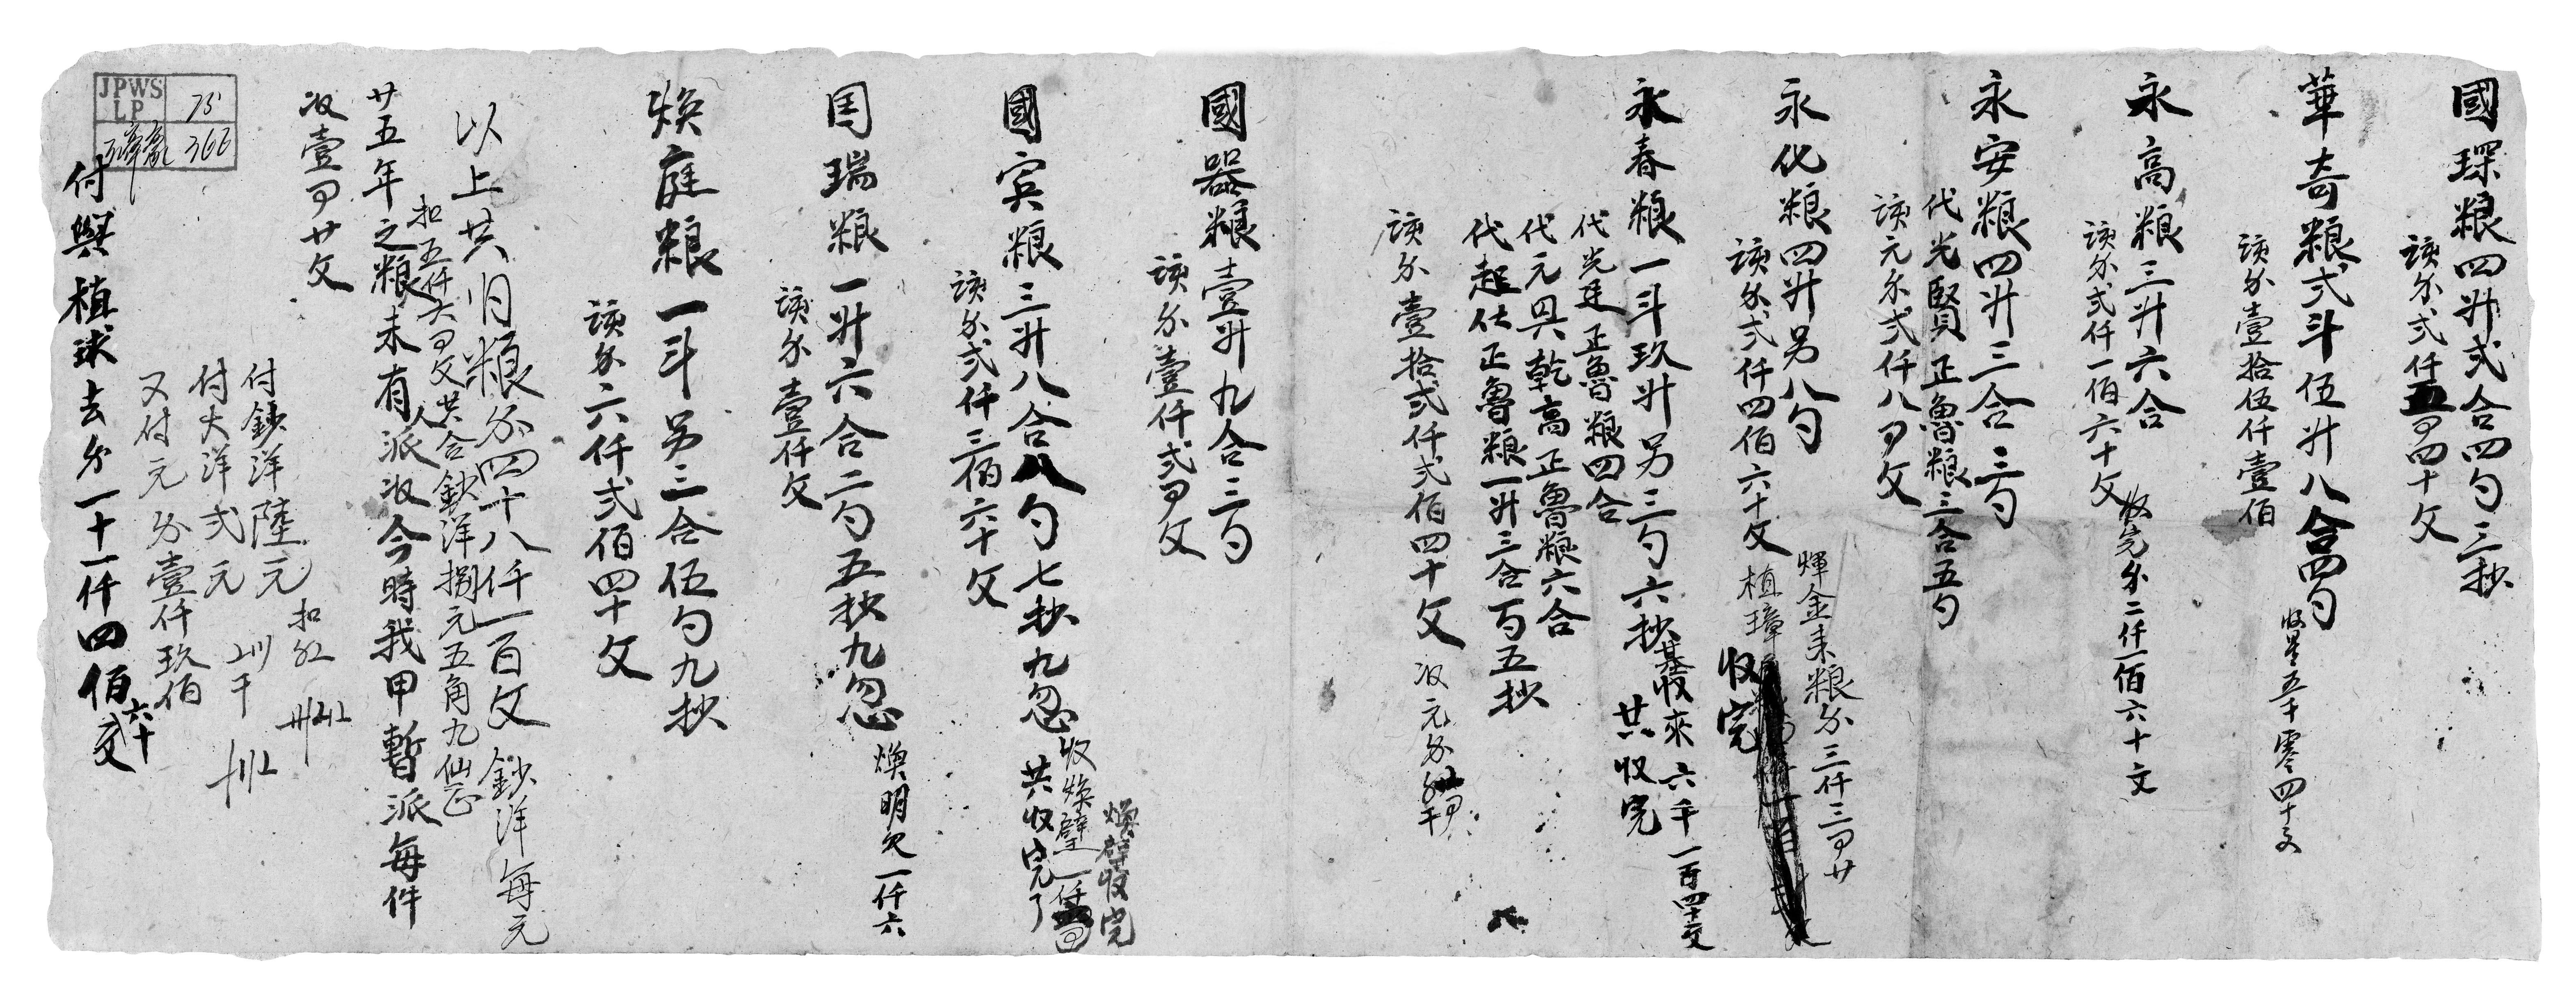 國琛粮四升弍合四勺三抄
該尔弍仟五百四十文
華奇粮弍斗伍升八合四勺
該尔壹拾伍仟壹佰
永高粮三升六合
該尔弍仟一佰六十文
收完尔二仟一佰六十文
永安粮四升三合三勺
代光賢正魯粮三合五勺
該元尔弍仟八百文
永化粮四升另八勺
該尔弍仟四佰六十文
煇金耒粮尔三仟三百廿
植璋
收完
永春粮一斗玖升另三勺六抄
收來六千一百四十文
共收完
代光廷正魯粮四合
代元興乾高正魯粮六合
代起仕正魯粮一升三合一勺五抄
該尔壹拾弍仟弍佰四十文
國器粮壹升九合三勺
該尔壹仟弍百文
煥璧收完
國賓粮三升八合八勺七抄九忽
收煥璧一仟
共收完了
該尔弍仟三佰六十文
国瑞粮一升六合二勺五抄九忽
煥明欠一仟六
該尔壹仟文
煥庭粮一斗另三合伍勺九抄
該尔六仟弍佰四十文
以上共归粮尔四十八仟一百文 鈔洋每元
扣五仟六百文共合鈔洋捌元五角九仙正
廿五年之粮未有人派收今時我甲暫派每件
收壹百廿文
JPWS LP 75 366
付鈔洋陸元
付大洋弍元
又付元尔壹仟玖佰
付與植球去尔一十一仟四佰六十文